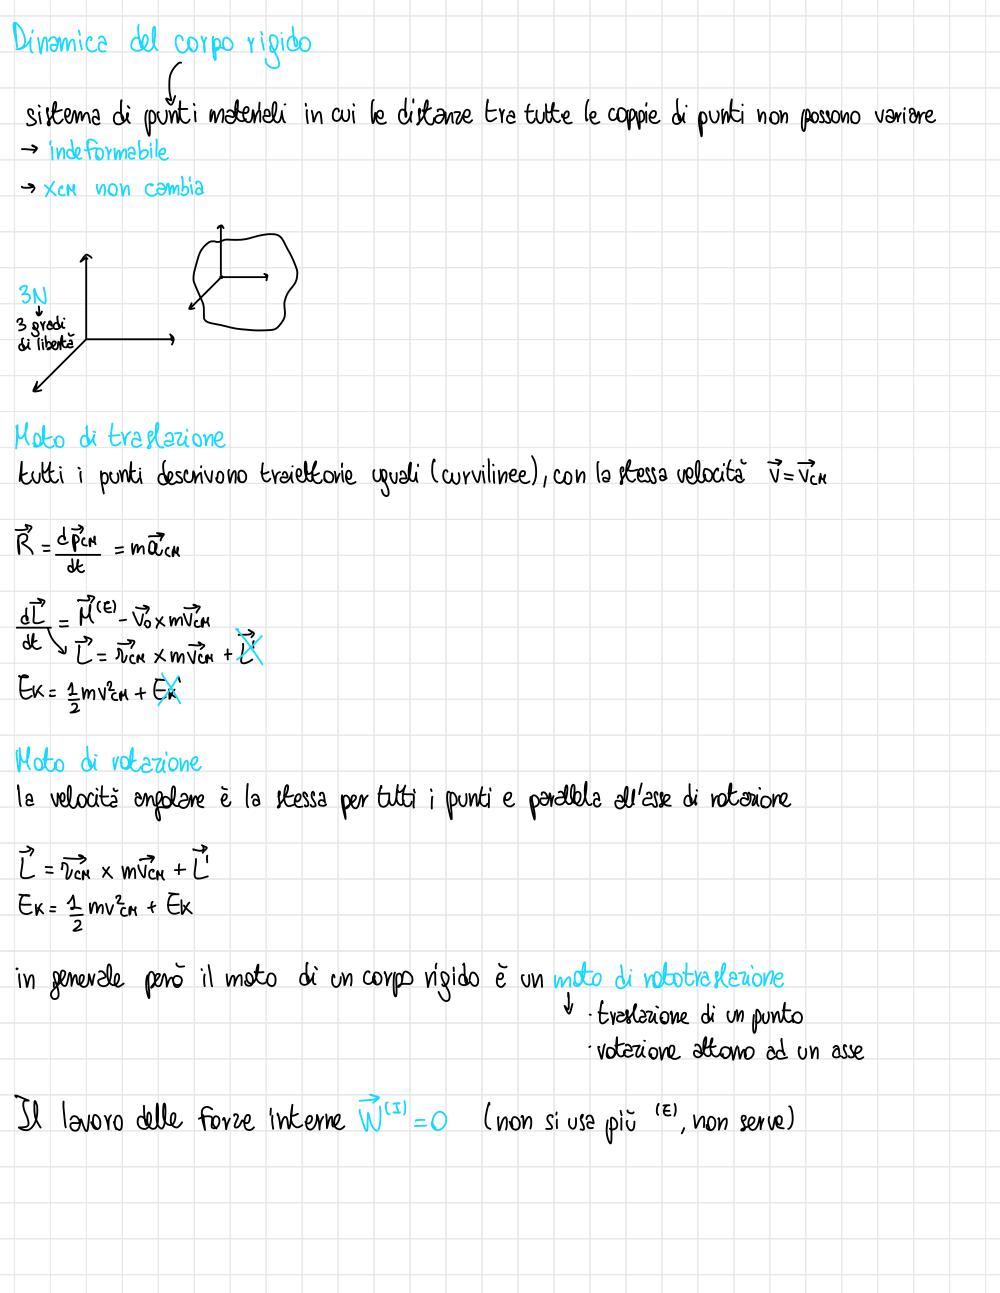 Dinamica del corpo rigido
sistema di punti materiali in cui le distanze tra tutte le coppie di punti non possono variare
→ indeformabile
→ xCM non cambia
3N
↓
3 gradi
di libertà
Moto di traslazione
tutti i punti descrivono traiettorie uguali (curvilinee), con la stessa velocità v⃗ = v⃗CM
R⃗ = dp⃗CM/dt = ma⃗CM
dL⃗/dt = M⃗^(E) - v⃗₀ × mv⃗CM
↘ L⃗ = r⃗CM × mv⃗CM + L⃗'
EK = 1/2 mv²CM + EK'
Moto di rotazione
la velocità angolare è la stessa per tutti i punti e parallela all'asse di rotazione
L⃗ = r⃗CM × mv⃗CM + L⃗'
EK = 1/2 mv²CM + EK
in generale però il moto di un corpo rigido è un moto di rototraslazione
↓ · traslazione di un punto
· rotazione attorno ad un asse
Il lavoro delle forze interne W⃗^(I) = 0 (non si usa più ^(E), non serve)